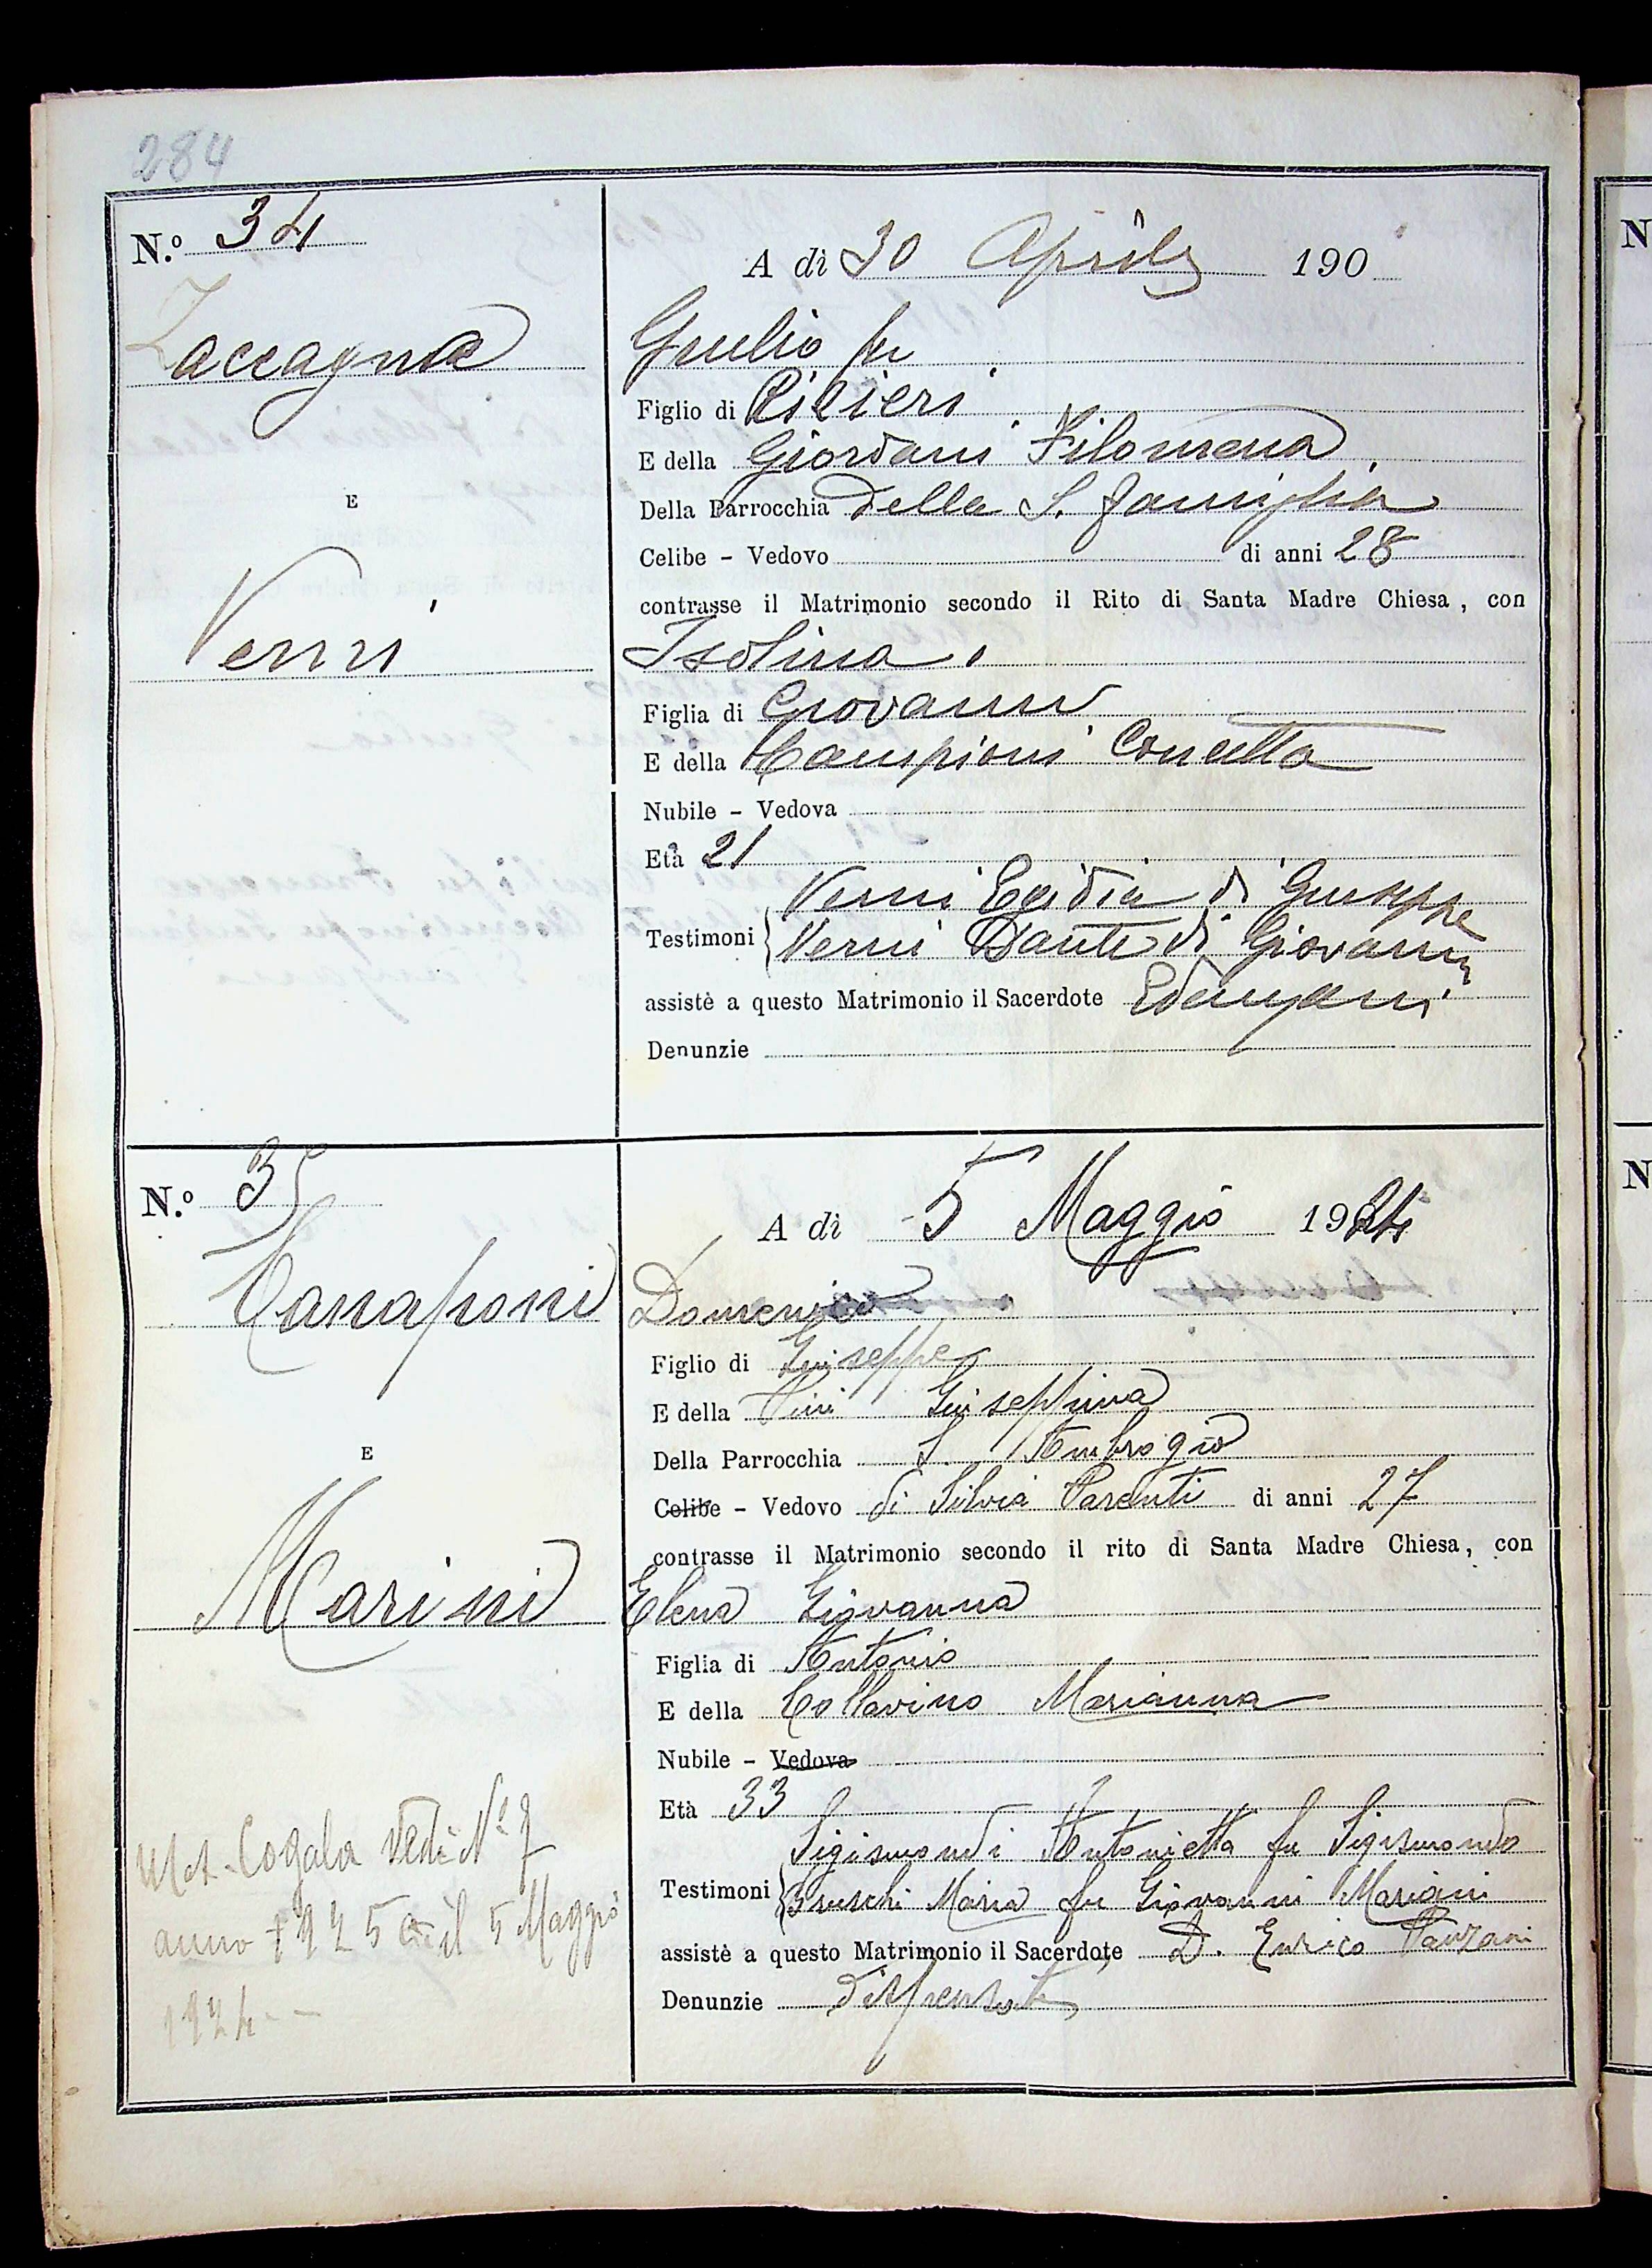 284
N.º 34
Zaccagna
E
Verni
A dì 30 Aprile 190
Giulio fu
Figlio di Pilieri
E della Giordani Filomena
Della Parrocchia della S. Famiglia
Celibe - Vedovo di anni 28
contrasse il Matrimonio secondo il Rito di Santa Madre Chiesa, con
Isolina
Figlia di Giovanni
E della Campioni Concetta
Nubile - Vedova
Età 21
Verni Egidia di Giuseppe
Testimoni Verni Dante di Giovanni
assistè a questo Matrimonio il Sacerdote
Denunzie
N.º 35
Canaponi
E
Marini
A dì 5 Maggio 1924
Domenico
Figlio di Giuseppe
E della Pini Giuseppina
Della Parrocchia S. Ambrogio
Celibe - Vedovo di Silvia Parenti di anni 27
contrasse il Matrimonio secondo il rito di Santa Madre Chiesa, con
Elena Giovanna
Figlia di Antonio
E della Collavino Marianna
Nubile - Vedova
Età 33
Sigismondi Antonietta fu Sigismondo
Testimoni Bruschi Maria fu Giovanni Mariani
assistè a questo Matrimonio il Sacerdote D. Enrico Panzani
Denunzie dispensate
Mat. Cogala Vedi Nº 7
anno 1925 il 5 Maggio
1924